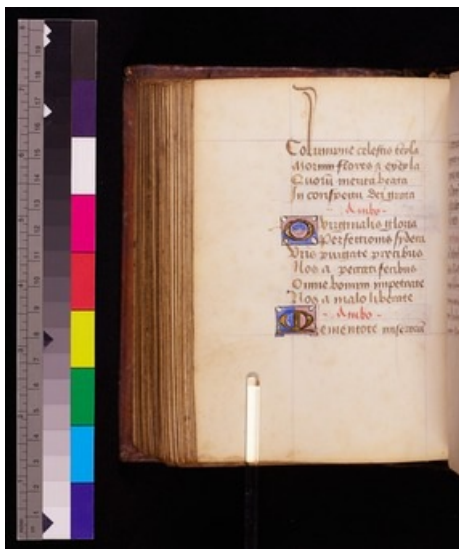 Columpne celestis te̅pla
Morum flores a exe̅pla
Quoru̅ merita beata
In conspectu dei grata
- Ambo -
O virginalis gloria
Perfectionis sydera
Vr̅is purgate precibus
Nos a peccati fecibus
Omne bonum impetrate
Nos a malo liberate
- Ambo -
Mementote miseroru̅